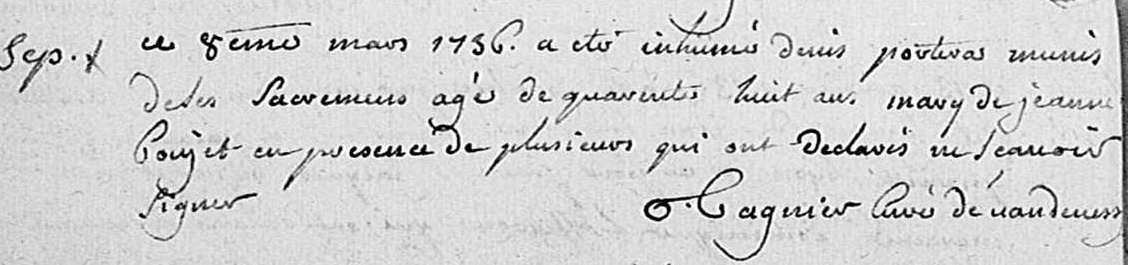 Sep. + ce 8eme mars 1736. a eté inhumé denis porterat munis
de ses Sacremens agé de quarente huit ans. mary de jeanne
Poujet en presence de plusieurs qui ont declarés ne Scauoir
Signer O. Cagnier Curé de uandeness